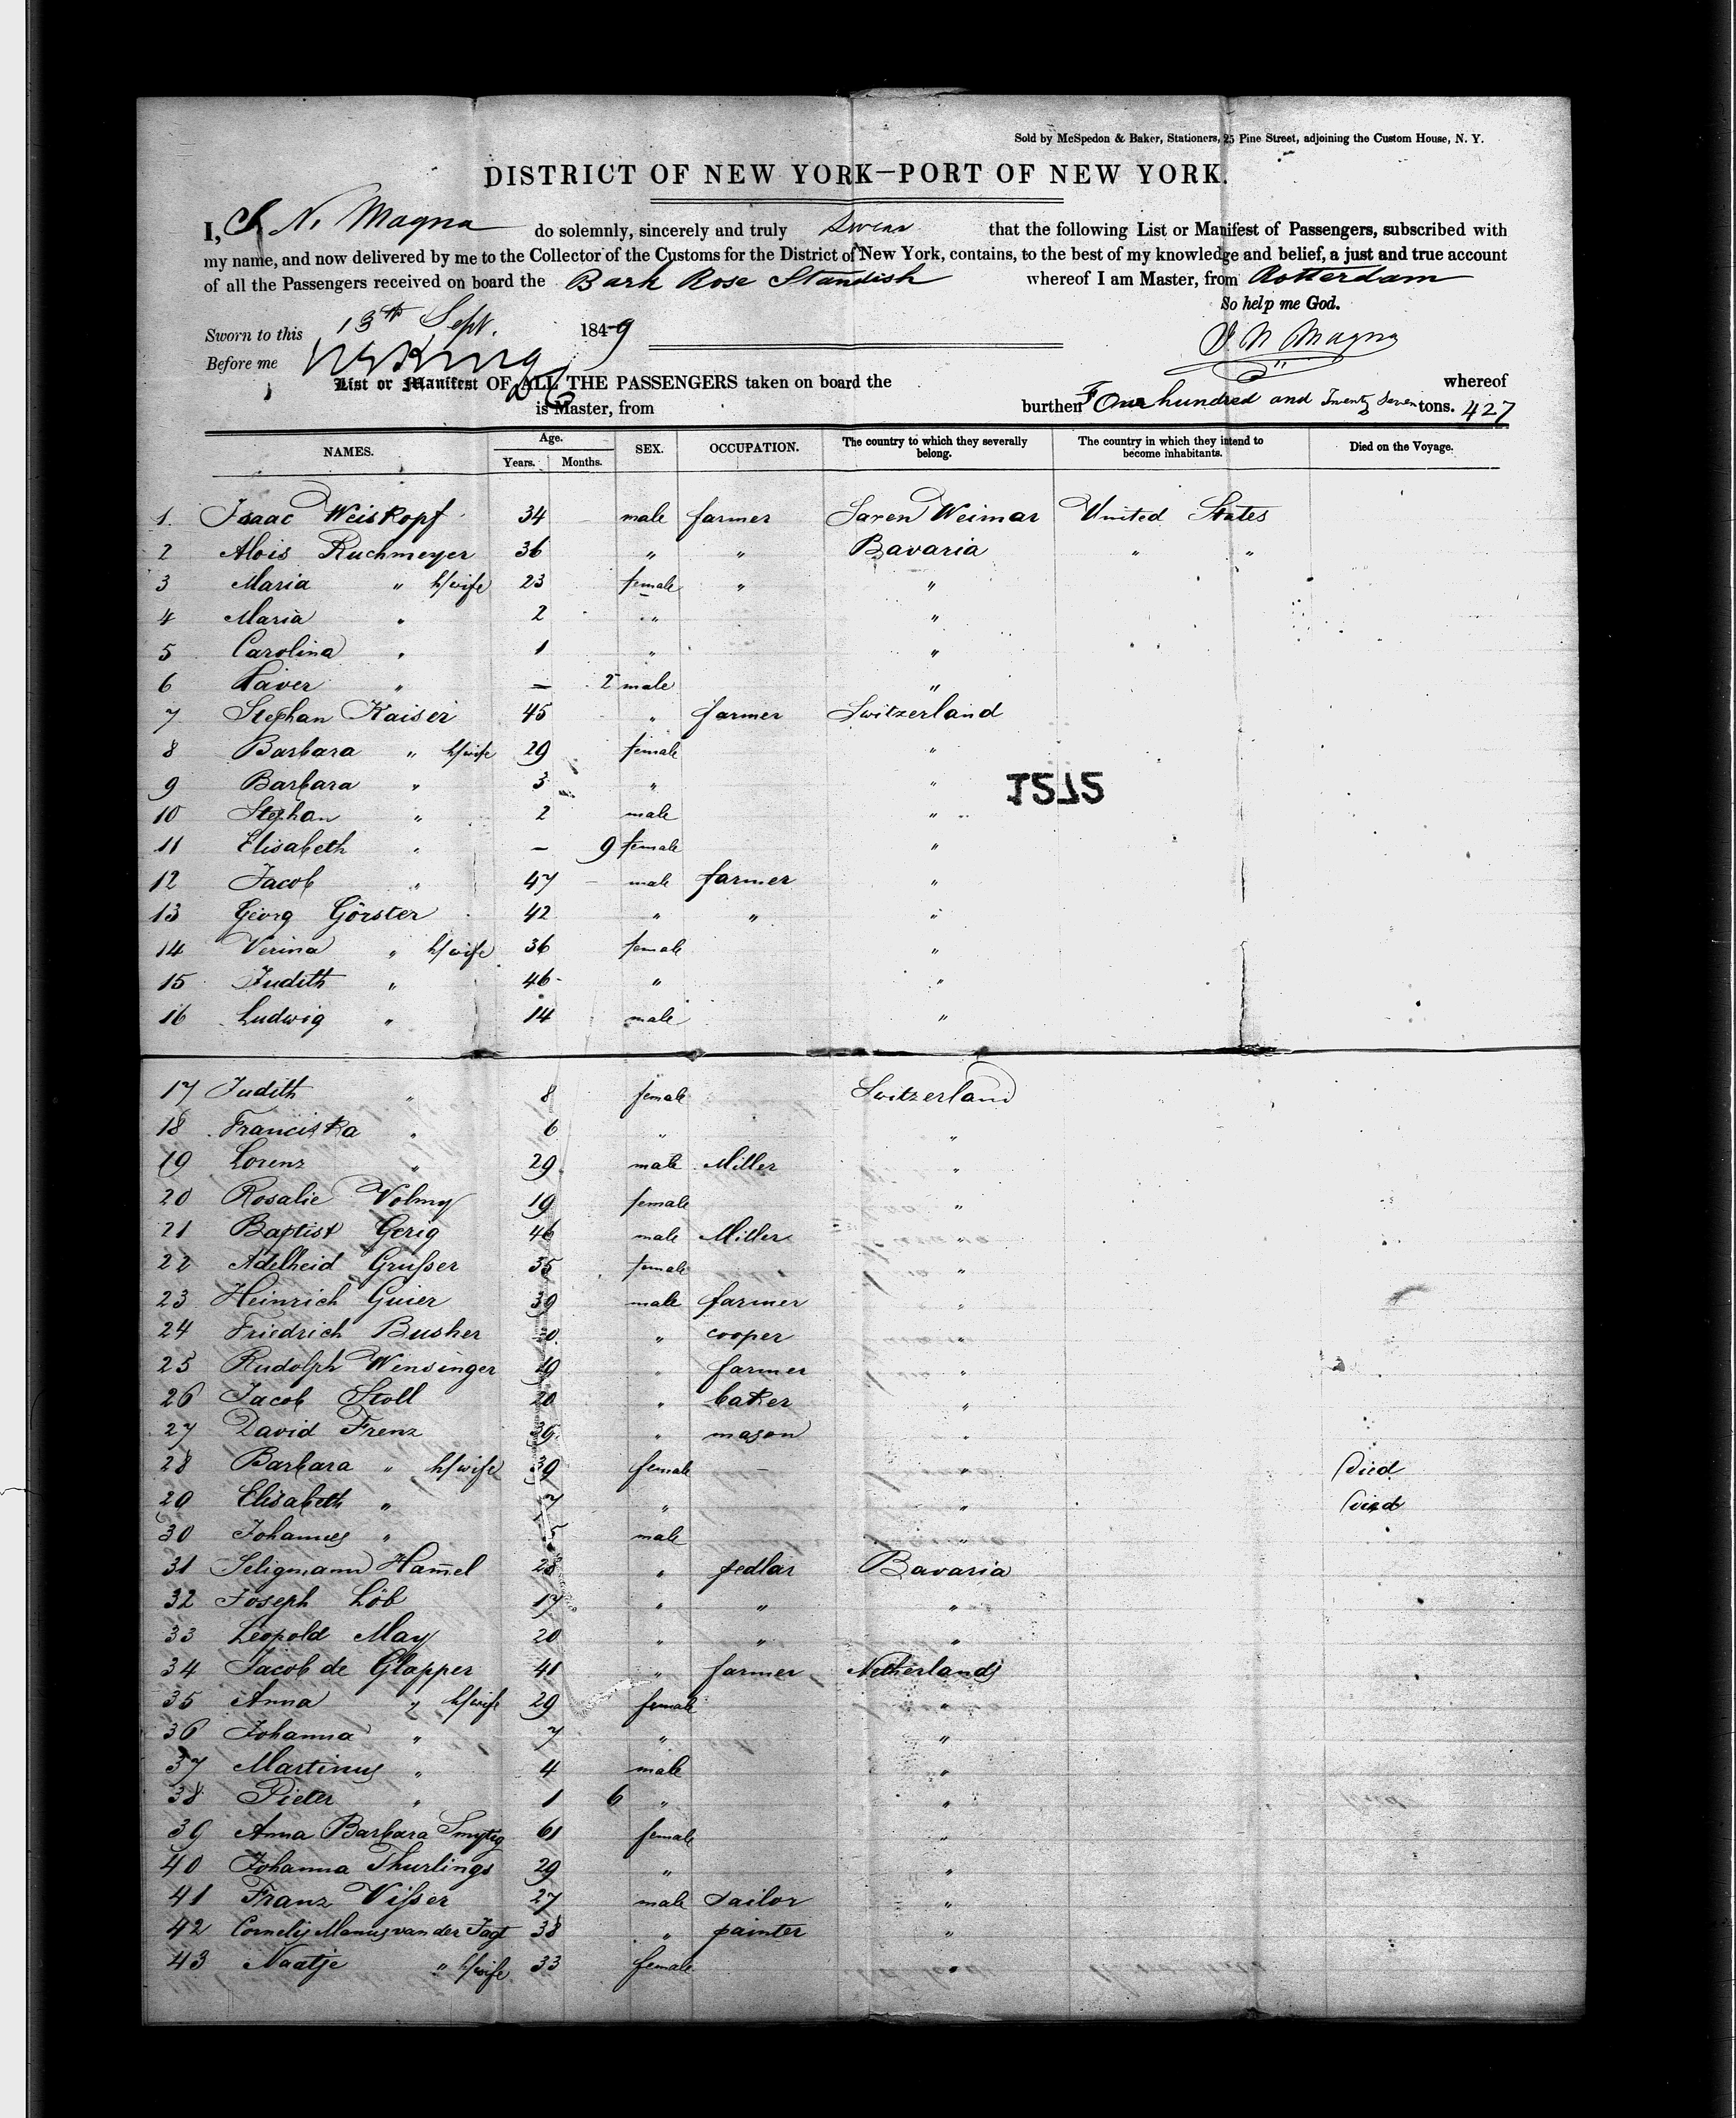 Sold by McSpedon & Baker, Stationers, 25 Pine Street, adjoining the Custom House, N. Y.
DISTRICT OF NEW YORK—PORT OF NEW YORK.
I, S. N. Magna do solemnly, sincerely and truly swear that the following List or Manifest of Passengers, subscribed with
my name, and now delivered by me to the Collector of the Customs for the District of New York, contains, to the best of my knowledge and belief, a just and true account
of all the Passengers received on board the Bark Rose Standish whereof I am Master, from Rotterdam
So help me God.
Sworn to this 13th Sept. 1849
N Magna
Before me
List or Manifest OF ALL THE PASSENGERS taken on board the whereof
is Master, from burthen Four hundred and Twenty Seven tons. 427
NAMES. Age. Years. Months. SEX. OCCUPATION. The country to which they severally belong. The country in which they intend to become inhabitants. Died on the Voyage.
1. Isaac Weiskopf 34 male farmer Saxen Weimar United States
2 Alois Ruchmeyer 36 " " Bavaria " "
3 Maria " h/wife 23 female " "
4 Maria " 2 " "
5 Carolina " 1 " "
6 Xaver " — 2 male "
7 Stephan Kaiser 45 " farmer Switzerland
8 Barbara " h/wife 29 female "
9 Barbara " 3 " "
1525
10 Stephan " 2 male "
11 Elisabeth " — 9 female "
12 Jacob " 47 male farmer "
13 Georg Görster 42 " " "
14 Verina " h/wife 36 female "
15 Judith " 46 " "
16 Ludwig " 14 male "
17 Judith " 8 female Switzerland
18 Franciska " 6 " "
19 Lorenz " 29 male Miller "
20 Rosalie Volmy 19 female "
21 Baptist Gerig 46 male Miller
22 Adelheid Grusser 35 female "
23 Heinrich Guier 39 male farmer "
24 Friedrich Busher " cooper "
25 Rudolph Wensinger " farmer "
26 Jacob Stoll 20 " baker "
27 David Frenz " mason "
28 Barbara " h/wife 39 female " Died
29 Elisabeth " 7 " " Died
30 Johannes " 5 male "
31 Seligmann Ham̄el 28 " pedlar Bavaria
32 Joseph Löb 17 " " "
33 Leopold May 20 " " "
34 Jacob de Glapper 41 " farmer Netherlands
35 Anna " h/wife 29 female "
36 Johanna " 7 " "
37 Martinus " 4 male "
38 Pieter " 1 6 " "
39 Anna Barbara 61 female "
40 Johanna Thurlings 29 " "
41 Franz Visser 27 male sailor "
42 Cornelis Manus van der Jagt 38 " painter "
43 Naatje " h/wife 33 female "